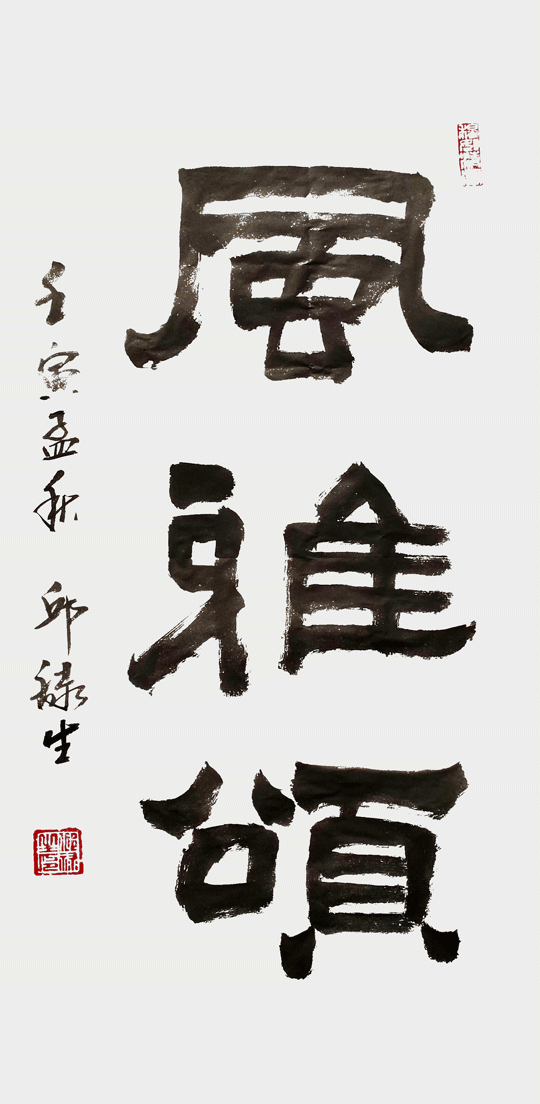 風雅頌
壬寅孟秋 邱祿生